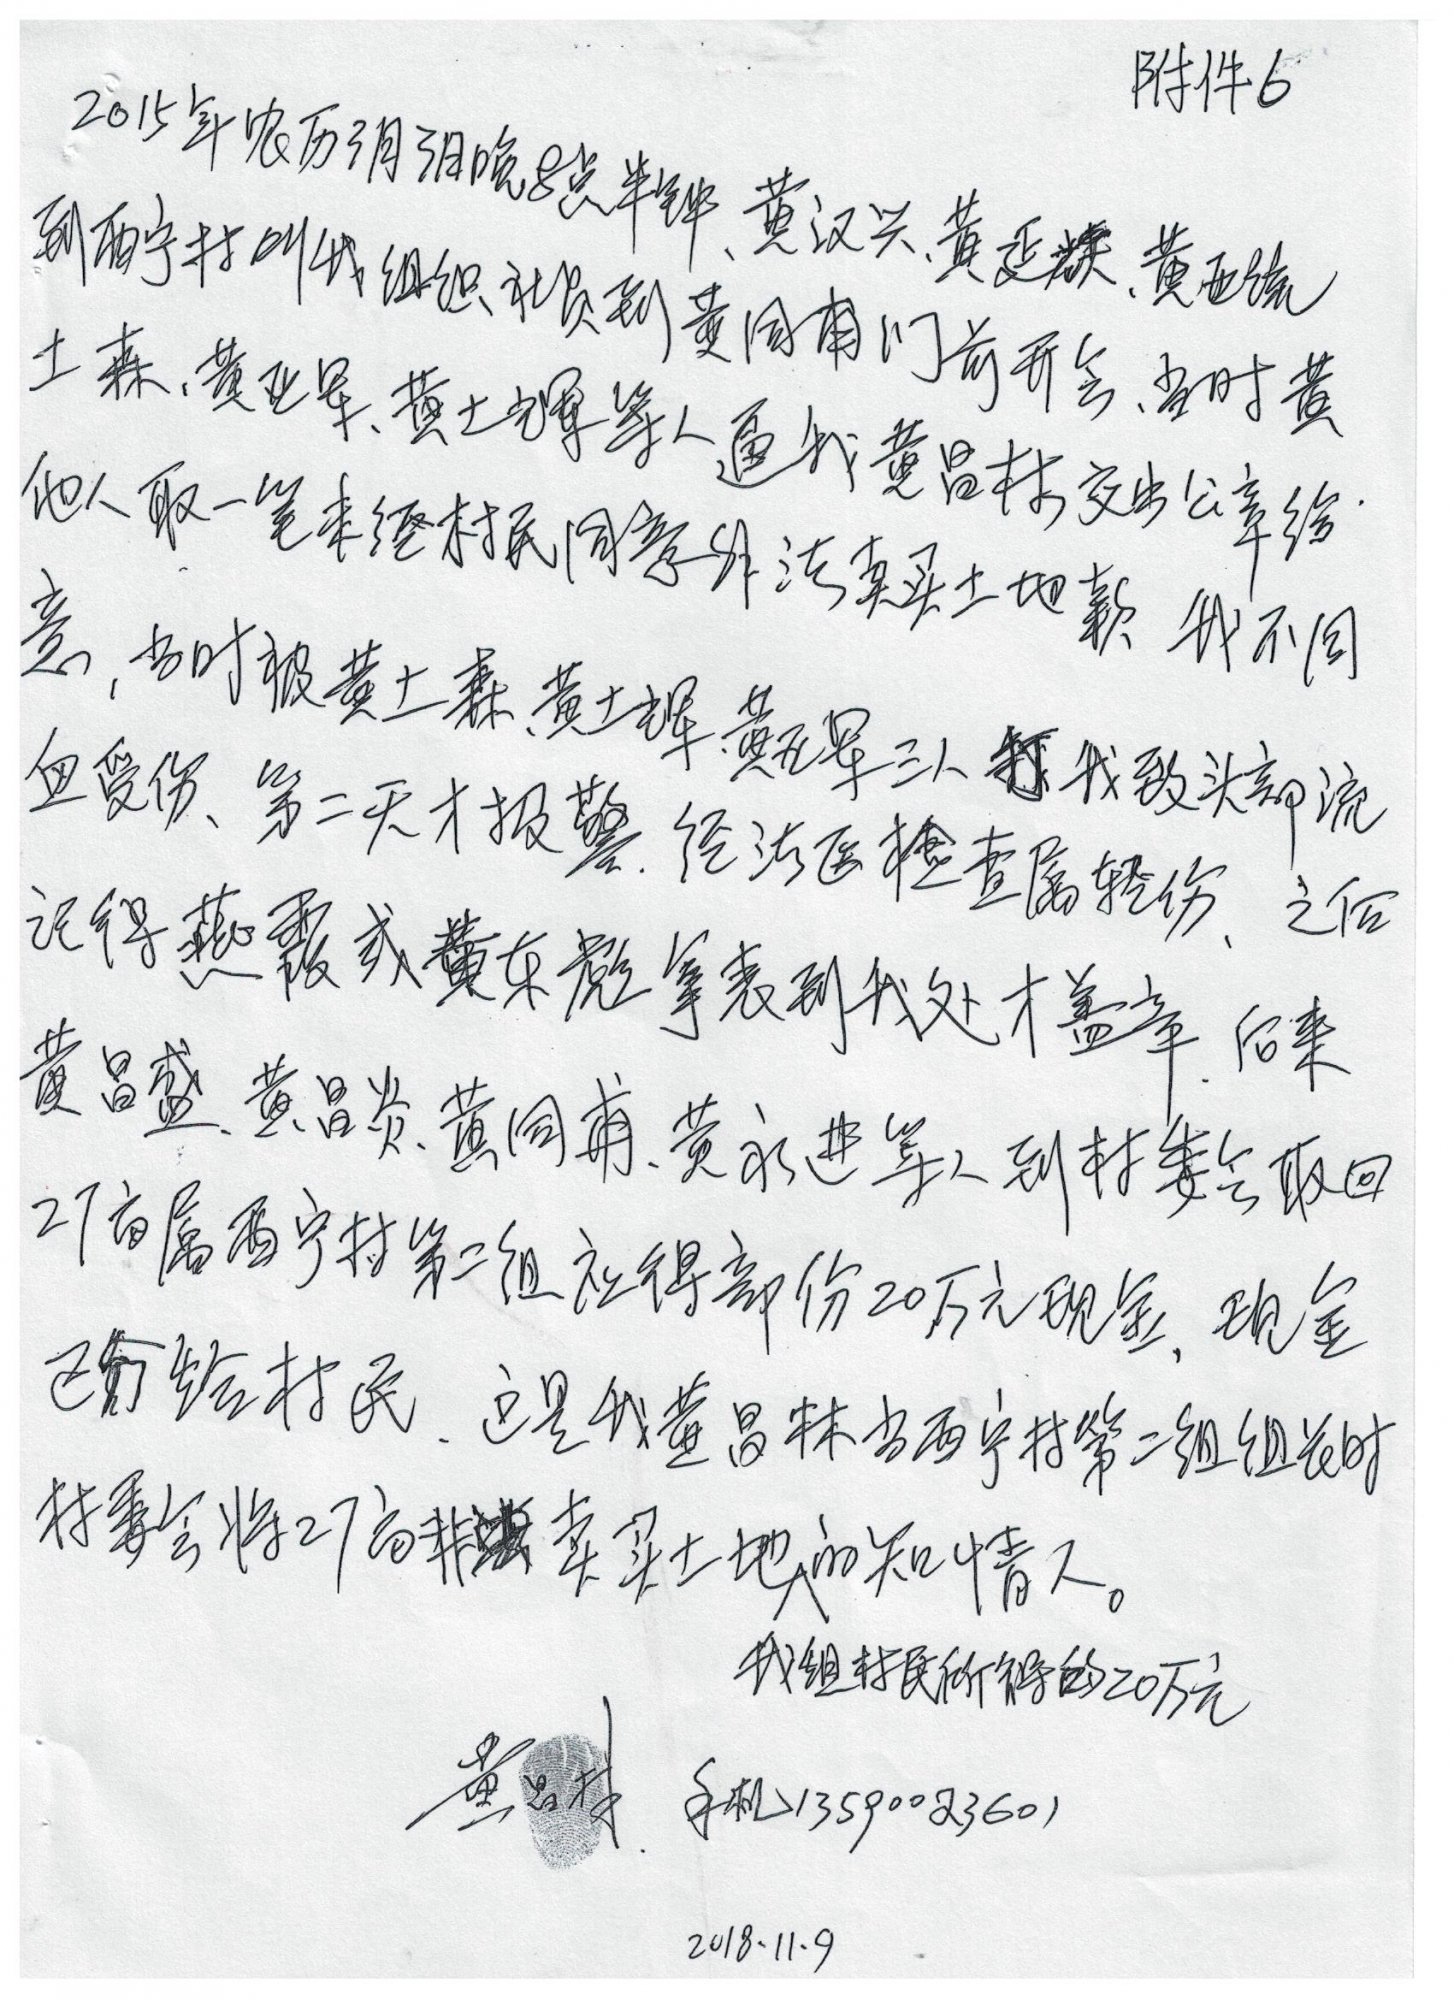 附件6
2015年农历3月3日晚8点半钟、黄汉兴、黄延、黄亚
到西宁村叫我组织社员到黄同甫门前开会、当时黄
土森、黄亚军、黄土辉等人逼我黄昌林交出公章给
他人取一笔未经村民同意非法卖买土地款 我不同
意,当时被黄土森、黄土辉、黄亚军三人打我致头部流
血受伤、第二天才报警.经法医检查属轻伤、之后
记得燕霞或黄东彪拿表到我处才盖章.后来
黄昌盛、黄昌炎、黄同甫、黄永进等人到村委会取回
27亩属西宁村第二组应得部份20万元现金,现金
已分给村民.这是我黄昌林当西宁村第二组组长时
村委会将27亩非法卖买土地的知情人。
我组村民所得的20万元
黄昌林. 手机13590023601
2018.11.9